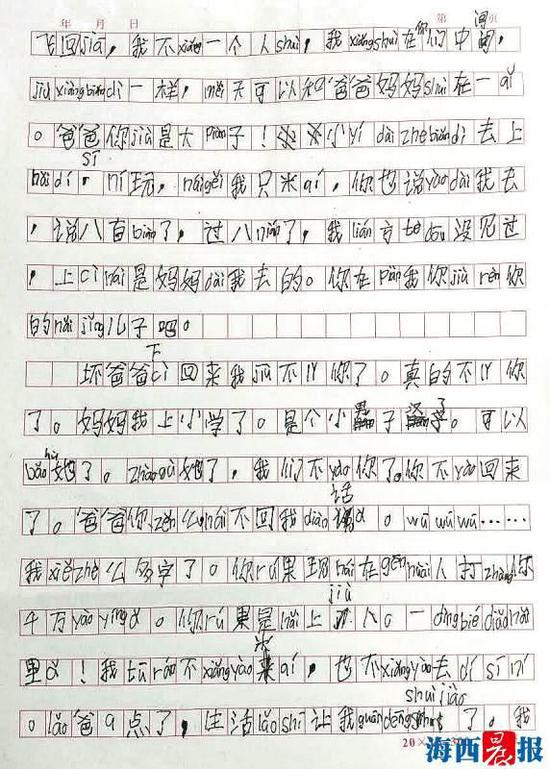 年 月 日 第 页
飞回jiā，我不xiǎng一个人shuì，我xiǎngshuì在你们中间，
jiù xiàng biān di 一样，měi天可以和爸爸妈妈shuì在一qǐ
。爸爸你jiù是大piàn子！小yí dài zhè biān dì 去上
hǎi dí sī ní 玩，nǎi gěi 我只米 qí，你也说yào dài 我去
，说八百biàn了，过八nián了，我lián 方 tè dōu 没见过
，上cì hái是妈妈dài我去的。你在piàn我你jiù rēn你
的nǎi jǐng儿子吧。
坏爸爸下cì回来我jiù不lǐ你了。真的不lǐ你
了。妈妈我上小学了。是个小男子汉了。可以
bǎo hù她了。zhào gù她了，我们不yào你了。你不yào回来
了。爸爸你zěn么hái不回我diàn话ɑ。wū wū wū……
我xiě zhè么多字了。你rú果现zài在gēn huài人打zhàng你
千万yào yíng ɑ。你rú果是hǎi上jiù人ɑ一dìng bié diào hǎi
里ɑ！我tū rán不xiǎng yào米qí，也不xiǎng yào去dí sī ní
。lǎo爸9点了，生活lǎo shī让我guān dēng shuì jiào了。我
20×
海西晨报